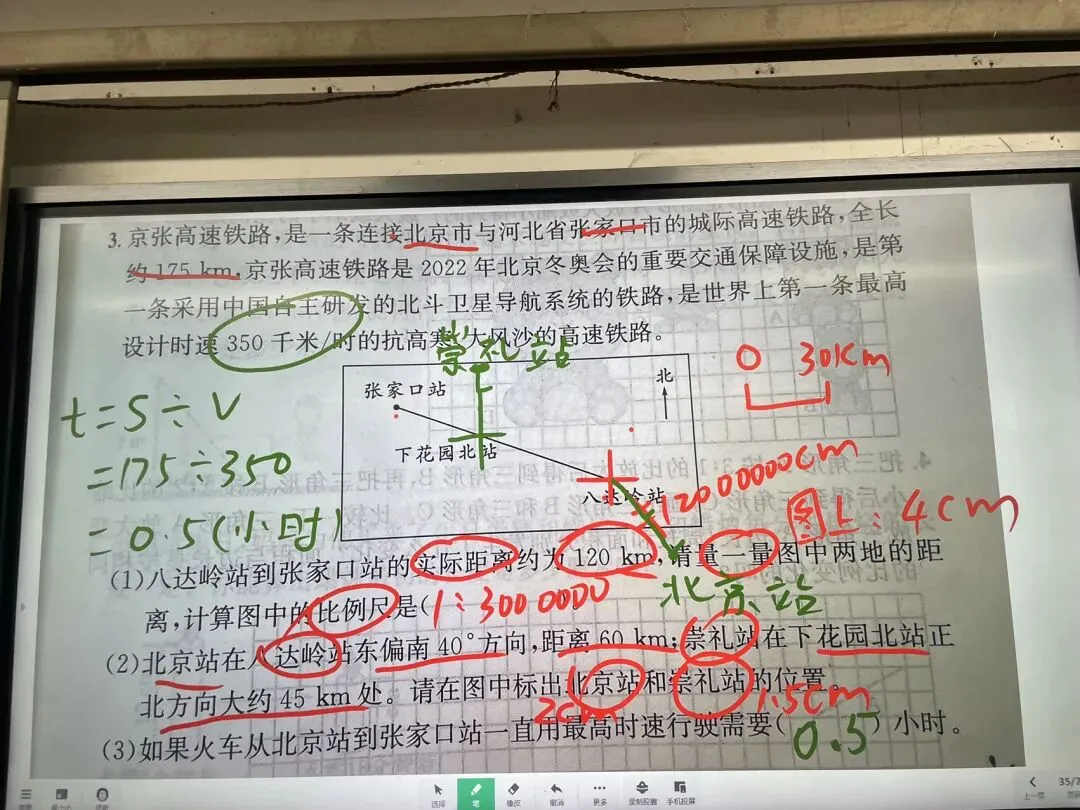 3. 京张高速铁路，是一条连接北京市与河北省张家口市的城际高速铁路，全长
约 175 km。京张高速铁路是 2022 年北京冬奥会的重要交通保障设施，是第
一条采用中国自主研发的北斗卫星导航系统的铁路，是世界上第一条最高
设计时速 350 千米/时的抗高寒、大风沙的高速铁路。
崇礼站
张家口站
北
0 30Km
下花园北站
八达岭站
t=S÷V
=175÷350
=0.5(小时)
=12000000cm
图上：4cm
(1)八达岭站到张家口站的实际距离约为 120 km，请量一量图中两地的距
离，计算图中的比例尺是( 1：3000000
北京站
(2)北京站在八达岭站东偏南 40°方向，距离 60 km；崇礼站在下花园北站正
北方向大约 45 km 处。请在图中标出北京站和崇礼站的位置。
2cm 1.5cm
(3)如果火车从北京站到张家口站一直用最高时速行驶需要( 0.5 )小时。
选择 笔 橡皮 撤消 更多 录制胶囊 手机投屏 上一页
35/7